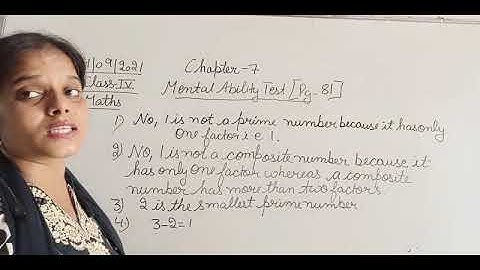 1/09/2021
Class-IV
Maths
Chapter-7
Mental Ability Test [Pg-81]
1) No, 1 is not a prime number because it has only
one factor i.e 1.
2) No, 1 is not a composite number because it
has only one factor whereas a composite
number has more than two factors
3) 2 is the smallest prime number
4) 3-2=1